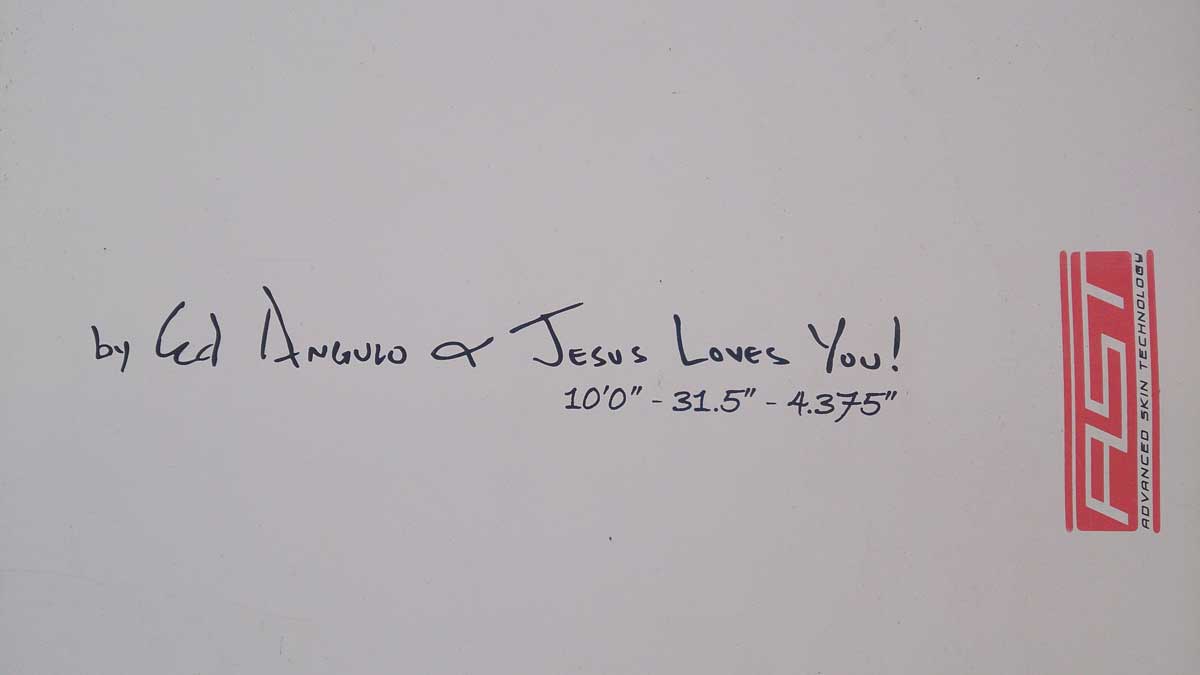 by Ed Angulo ∝ Jesus Loves You!
10'0" - 31.5" - 4.375"
AST
ADVANCED SKIN TECHNOLOGY